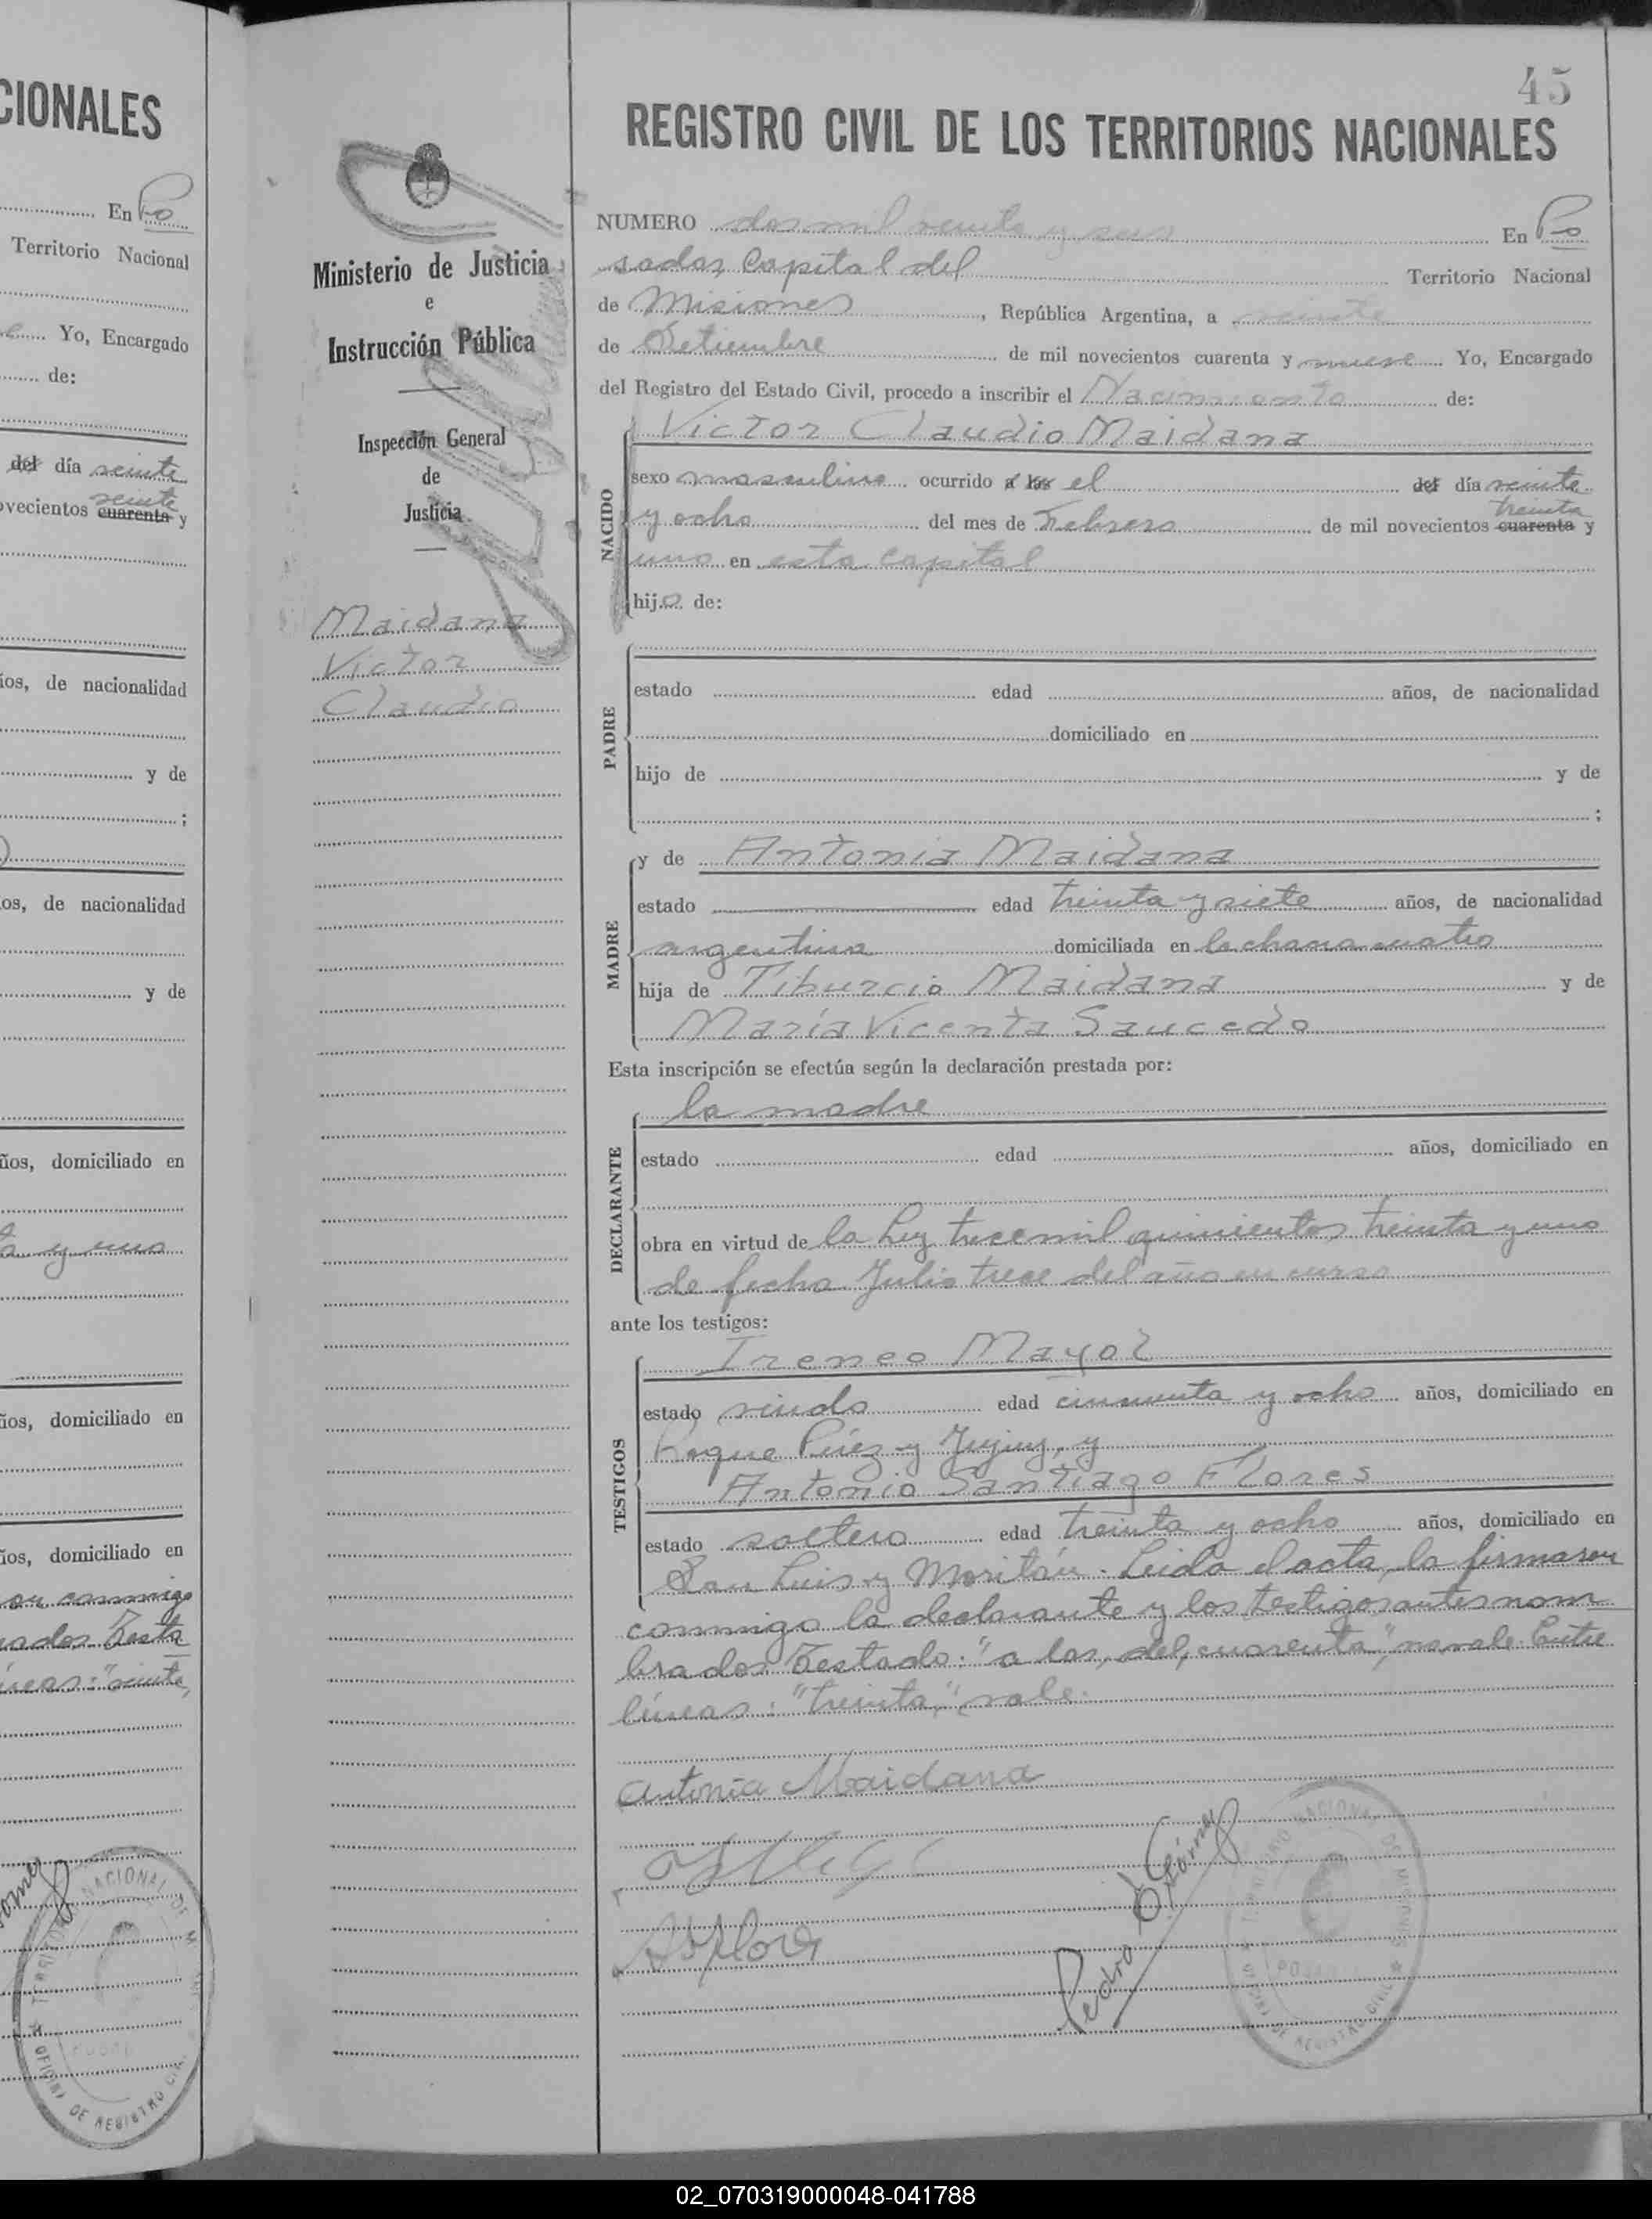 CIONALES
En Po
Territorio Nacional
Yo, Encargado
de:
del día veinte
veinte
ovecientos cuarenta y
ios, de nacionalidad
y de
;
os, de nacionalidad
y de
ños, domiciliado en
a y uno
ños, domiciliado en
ios, domiciliado en
on conmigo
rados Testa
íneas: "veinte,
Ministerio de Justicia
e
Instrucción Pública
Inspección General
de
Justicia
Maidana
Victor
Claudio
45
REGISTRO CIVIL DE LOS TERRITORIOS NACIONALES
NUMERO dos mil veinte y seis En Po
sadas, Capital del Territorio Nacional
de Misiones, República Argentina, a veinte
de Setiembre de mil novecientos cuarenta y nueve Yo, Encargado
del Registro del Estado Civil, procedo a inscribir el Nacimiento de:
Victor Claudio Maidana
NACIDO
sexo masculino ocurrido a las el del día veinte
treinta
y ocho del mes de Febrero de mil novecientos cuarenta y
uno en esta capital
hijo de:
PADRE
estado edad años, de nacionalidad
domiciliado en
hijo de y de
;
MADRE
y de Antonia Maidana
estado edad treinta y siete años, de nacionalidad
argentina domiciliada en la chacra cuatro
hija de Tiburcio Maidana y de
María Vicenta Saucedo
Esta inscripción se efectúa según la declaración prestada por:
DECLARANTE
la madre
estado edad años, domiciliado en
obra en virtud de la Ley trece mil quinientos treinta y uno
de fecha Julio trece del año en curso
ante los testigos:
TESTIGOS
Ireneo Mayol
estado viudo edad cincuenta y ocho años, domiciliado en
Roque Pérez y Jujuy, y
Antonio Santiago Flores
estado soltero edad treinta y ocho años, domiciliado en
San Luis y Moritán. Leida el acta, la firmaron
conmigo la declarante y los testigos antes nom
brados Testado: "a las, del, cuarenta", no vale. Entre
líneas: "treinta", vale.
Antonia Maidana
ASFlores
Pedro Gómez
TERRITORIO NACIONAL DE MISIONES
OFICINA DE REGISTRO CIVIL
02_070319000048-041788